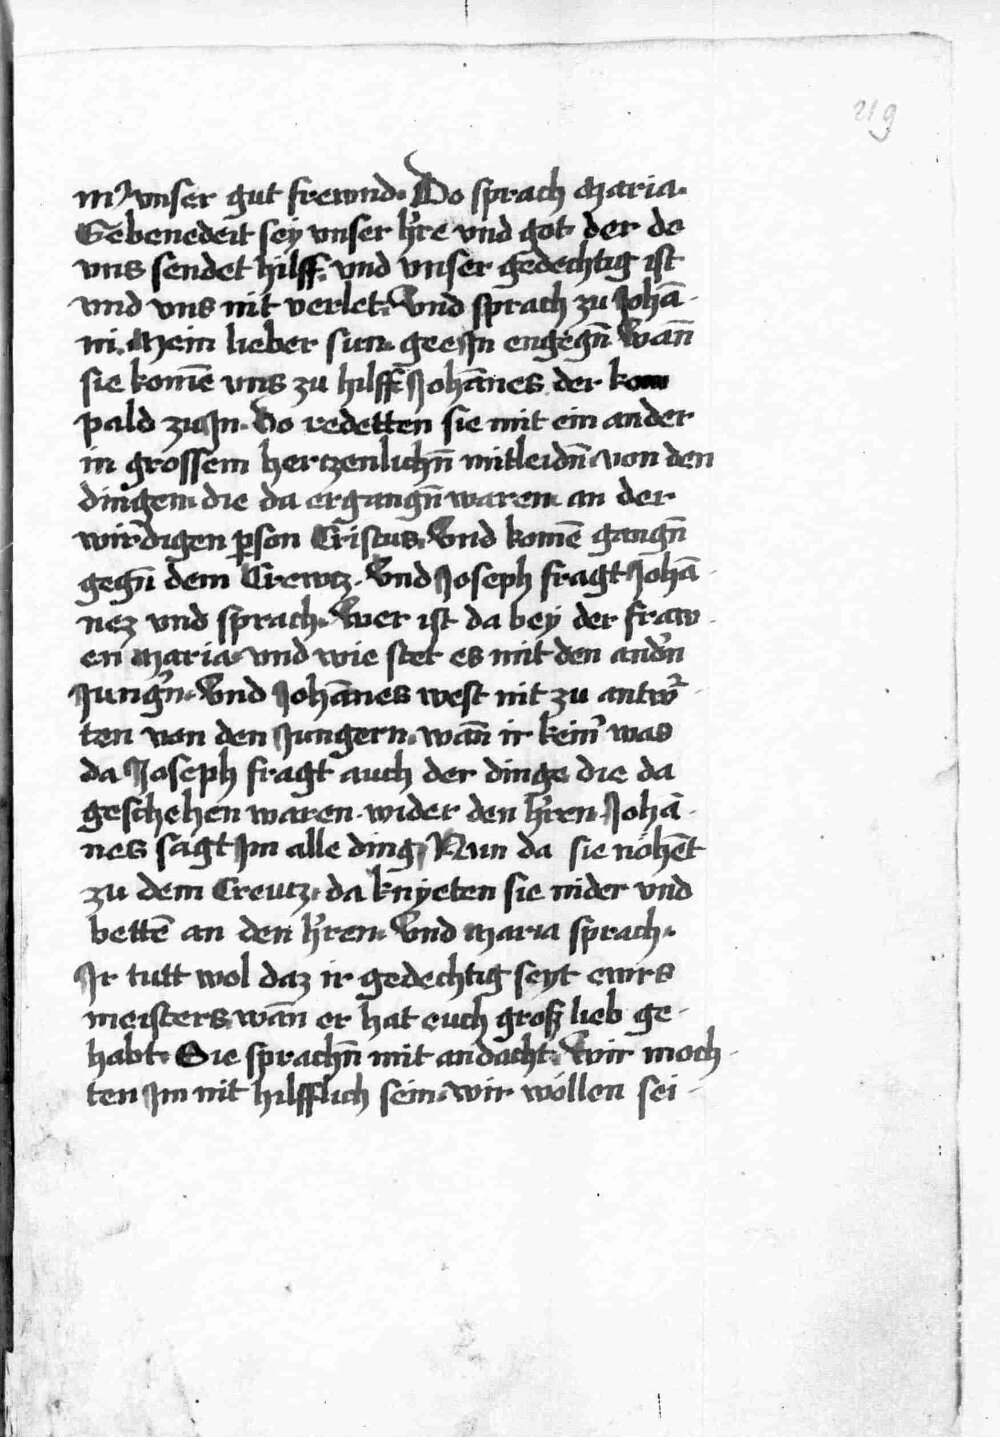 219
m) vnser gut frewnd. Do sprach Maria.
Gebenedeit sey vnser h're vnd got. der do
vns sendet hilff. vnd vnser gedechtig ist
vnd vns nit verlet. Vnd sprach zu Johā-
ni. Mein lieber sun. gee Jn engegn̄. Wan̄
sie komē vns zu hilff. Johānes der kom
pald zu Jn. Do redetten sie mit ein ander
in grossem hertzenlichn̄ mitleidn̄. von den
dingem. die da ergangn̄ waren. an der
wirdigen p̱son Cristus. Vnd komē gangn̄
gegn̄ dem Crewtz. Vnd Joseph fragt Johā-
nez vnd sprach. Wer ist da bey der fraw-
en Maria. vnd wie stet es mit den and'n
Jung'n. Vnd Johānes west nit zu antw'-
ten von den Jungern. wan̄ ir kein' was
da Joseph fragt auch der dinge die da
geschehen waren. wider den h'ren. Johā-
nes sagt Jm alle ding. Nun da sie nöhet
zu dem Creutz. da knyeten sie nider vnd
bettē an den h'ren. Vnd Maria sprach.
Jr tutt wol daz ir gedechtig seyt ewrs
meisters. wan̄ er hat euch groß lieb ge-
habt. Sie sprachn̄ mit andacht. Wir moch-
ten Jm nit hilfflich sein. wir wöllen sei-